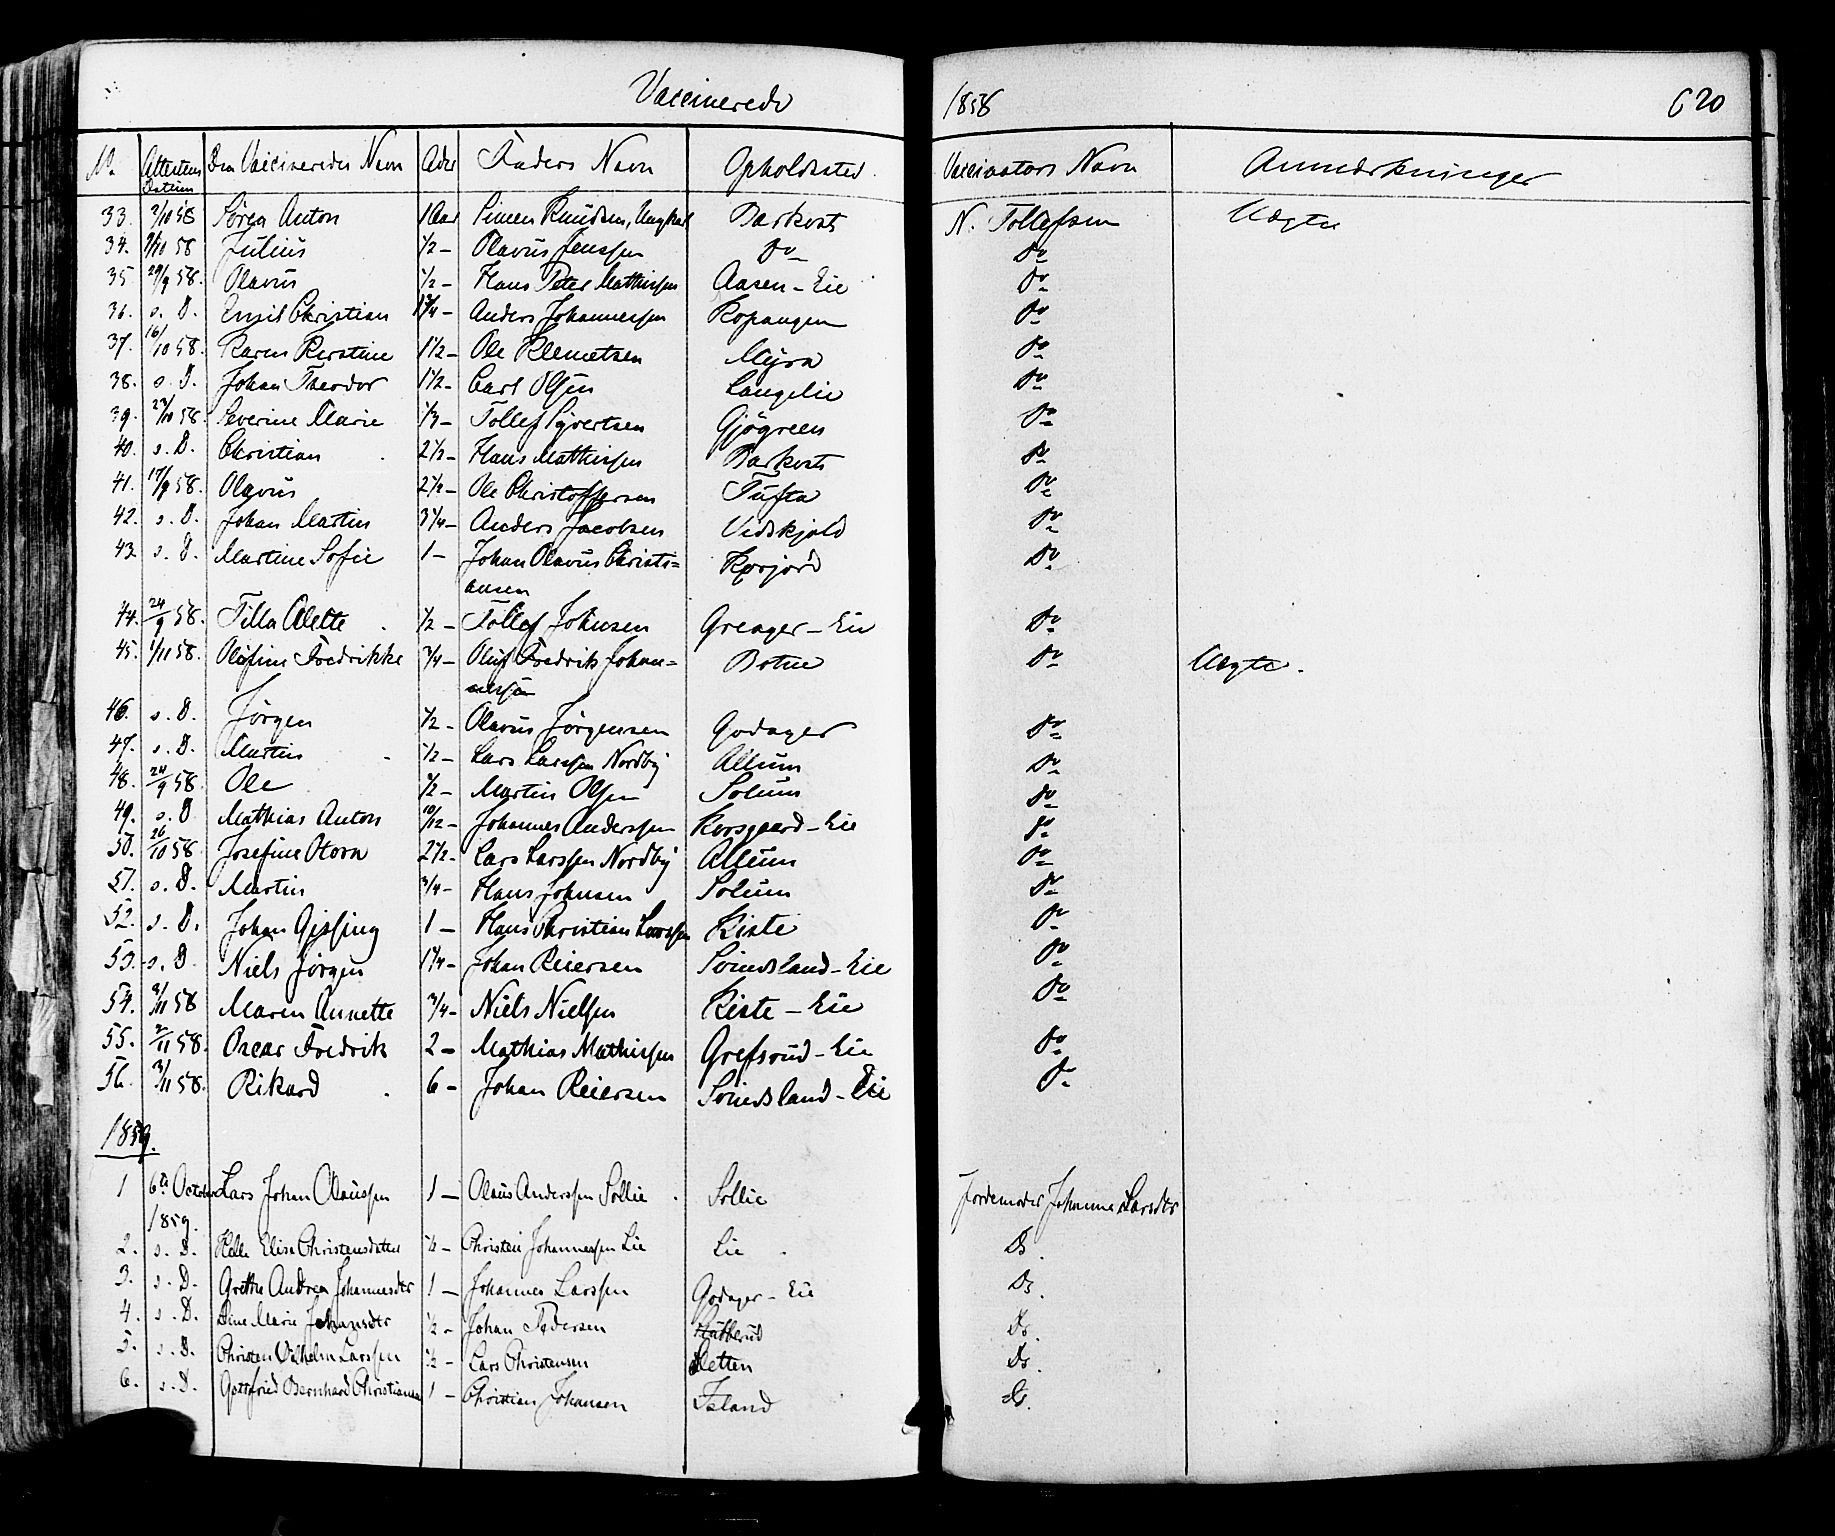 Vaccinerede 1858 620
No. Attestens Datum Den Vaccineredes Navn Alder Faders Navn Opholdssted Vaccinators Navn Anmærkninger
33. 2/10 58 Søren Anton 1 Aar Simen Knudsen, Ungkarl Barkost N. Tollefsen Uægte
34. 9/10 58 Julius 1/2 – Olavus Jenssen Do Do
35 29/9 58. Olavus 1/2 – Hans Peter Mathissen Aasen – Eie Do
36. s. D. Emil Christian 1 3/4 – Anders Johannessen Kopangen Do
37. 16/10 58. Karen Kirstine 1 1/2 – Ole Klemetsen Myra Do
38. s. D. Johan Theodor 1 1/2 – Carl Olsen Langelie Do
39. 23/10 58. Severine Marie 1/3 – Tollef Syvertsen Gjøgreen Do
40. s. D. Christian 2 1/2 – Hans Mathissen Barkost Do
41. 17/9 58. Olavus 2 1/2 – Ole Christoffersen Tufta Do
42. s. D. Johan Martin 3 1/4 – Anders Jacobsen Vidskjold Do
43. s. D. Martine Sofie 1 – Johan Olavus Christi= Korjord Do
ansen
44. 24/9 58. Tilla Alette 1/2 – Tollef Johnsen Greager – Eie Do
45. 1/11 58. Olufine Fredrikke 3/4 – Oluf Fredrik Johan= Botne Do Uægte.
nessen
46. s. D. Jørgen 1/2 – Olavus Jørgensen Godager Do
47. s. D. Martin 1/2 – Lars Larssen Nordby Allum Do
48. 24/9 58. Ole 1/2 – Martin Olsen Solum Do
49. s. D Mathias Anton 10/12 – Johannes Anderssen Korsgaard – Eie Do
50. 26/10 58 Josefine Hora 2 1/2 – Lars Larssen Nordby Allum Do
51. s. D. Martin 3/4 – Hans Johnsen Solum Do
52. s. D. Johan Gissing 1 – Hans Christian Larssen Kiste Do
53. s. D Niels Jørgen 1 1/4 – Johan Reiersen Soindsland – Eie Do
54. 3/11 58 Maren Annette 3/4 – Niels Nielsen Kiste – Eie Do
55. 2/11 58. Oscar Fredrik 2 – Mathias Mathissen Grefsrud – Eie Do
56. 3/11 58. Rikard 6 – Johan Reiersen Soindsland – Eie Do
1859.
1 6te October Lars Johan Olaussen 1 – Olaus Anderssen Sollie Sollie Jordemoder Johanne Larsdtr
1859.
2. s. D. Helle Elise Christensdatter 1/2 – Christen Johannessen Lie Lie Do.
3. s. D. Grethe Andrea Johannesdtr 1 – Johannes Larssen Godager – Eie Do.
4. s. D. Dine Marie Johansdtr 1/2 – Johan Pedersen Hutterud Do.
5. s. D. Christen Vilhelm Larssen 1/2 – Lars Christensen Sletten Do.
6. s. D. Gottfried Bernhard Christiansen 1 – Christian Johansen Island Do.